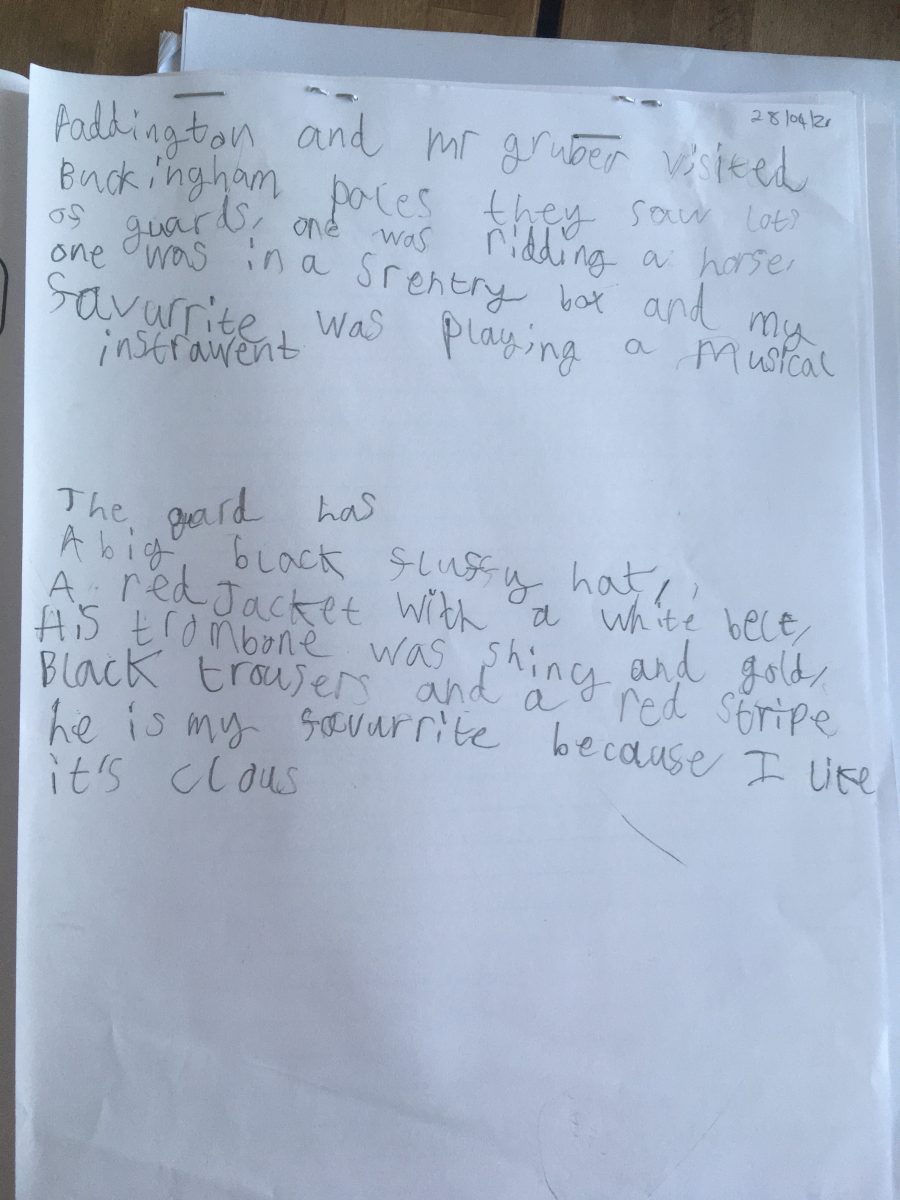 28/04/2
Paddington and mr gruber visited
Buckingham pales they saw lots
of guards, one was ridding a horse,
one was in a srentry box and my
favurrite was playing a musical
instrawent
The guard has
A big black fluffy hat,,
A red Jacket with a white belt,
His trombone was shiny and gold,
Black trousers and a red stripe
he is my favurrite because I like
it's clous